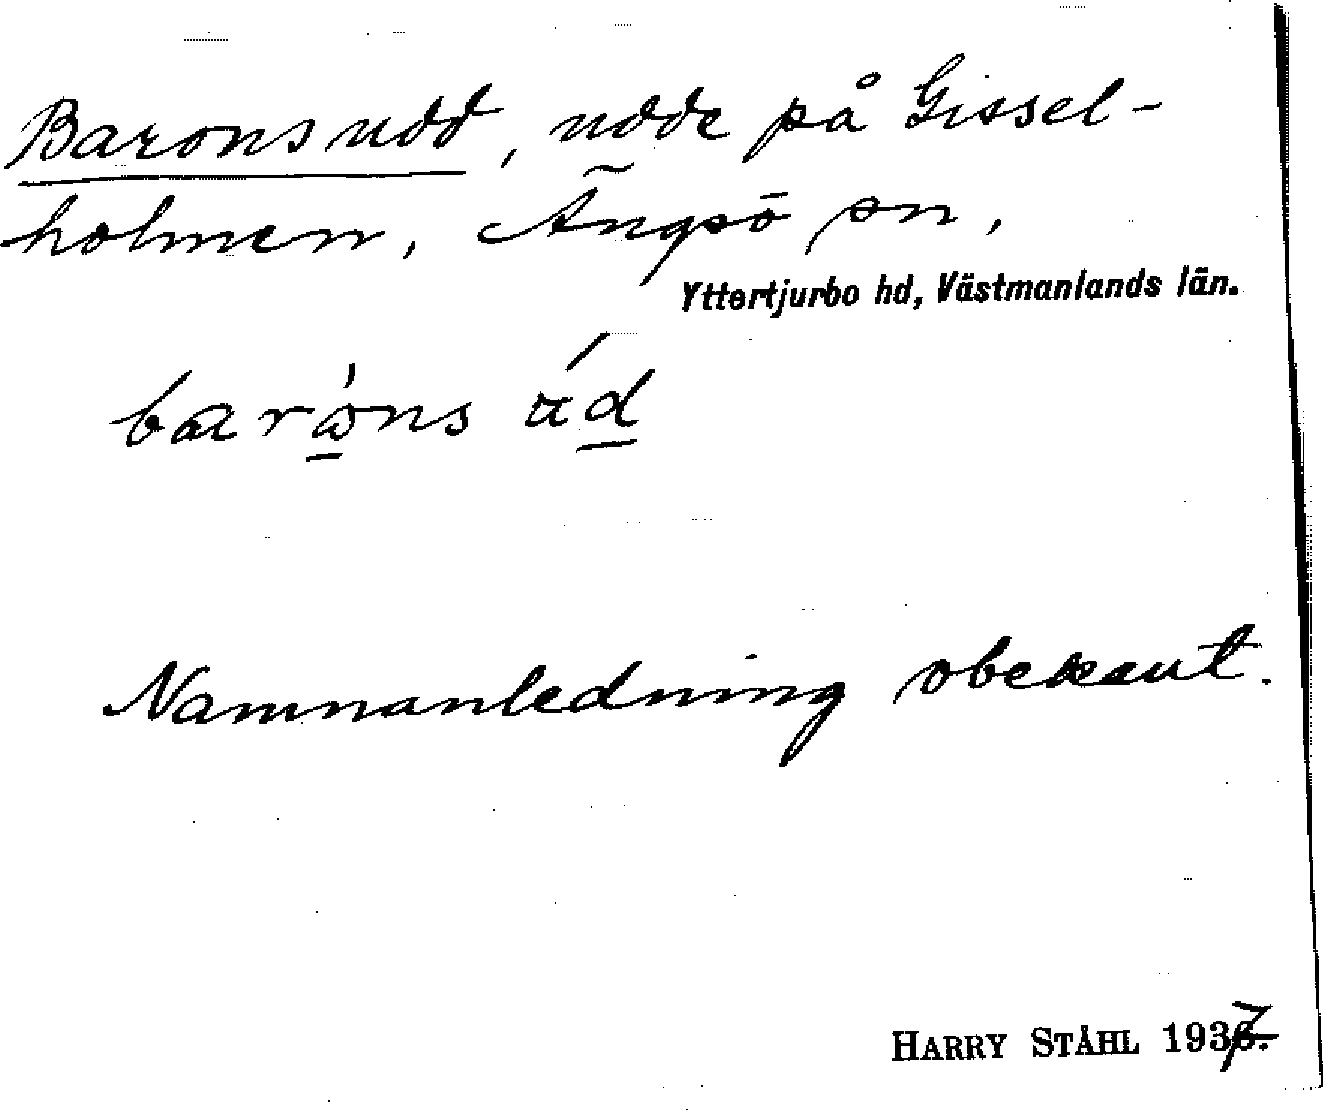 Baronsudd, udde på Gissel-
holmen, Ängsö sn,
Yttertjurbo hd, Västmanlands län.
barὼns úd
Namnanledning obekant.
HARRY STÅHL 1937.